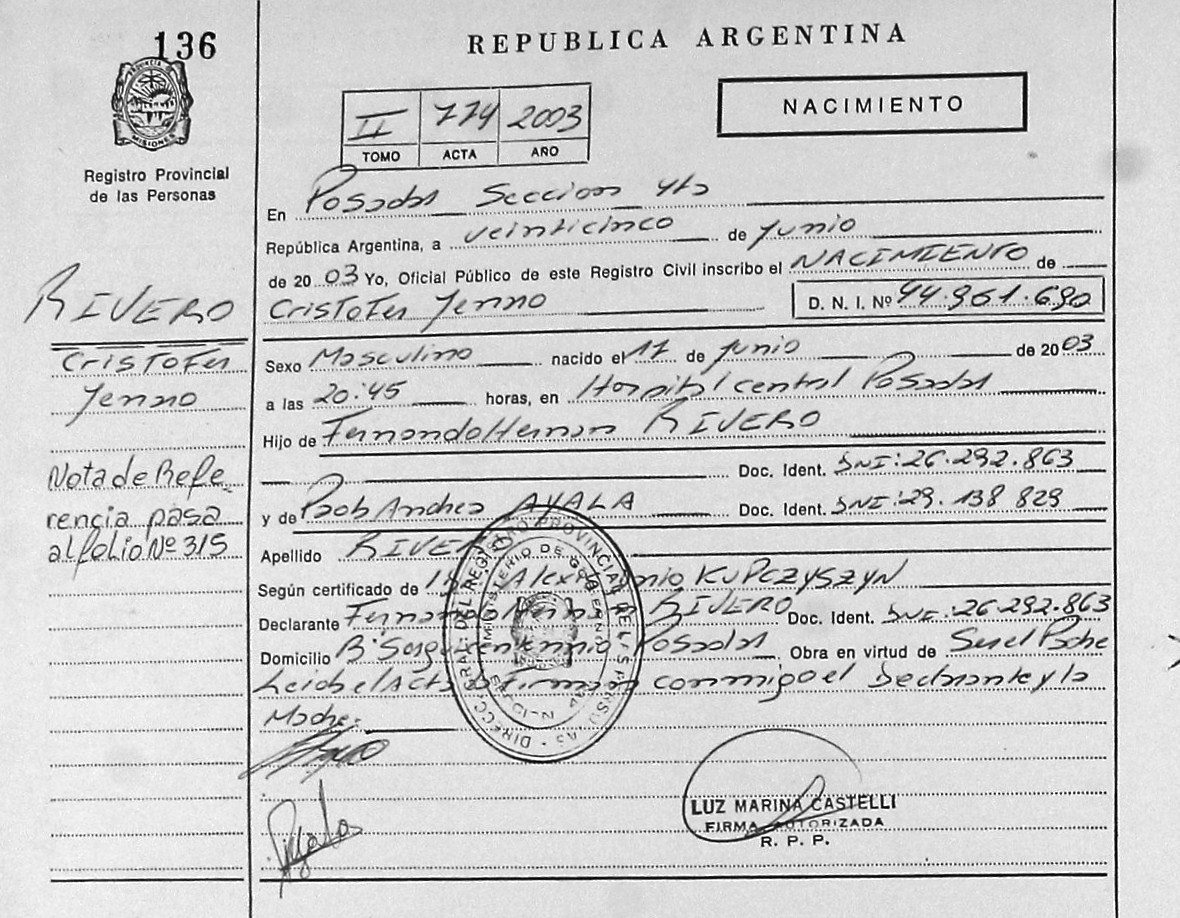 136
REPUBLICA ARGENTINA
PROVINCIA DE MISIONES
Registro Provincial
de las Personas
II 774 2003
TOMO ACTA AÑO
NACIMIENTO
En Posadas Seccion 4ta
República Argentina, a veinticinco de Junio
de 2003 Yo, Oficial Público de este Registro Civil inscribo el NACIMIENTO de
Cristofer D. N. I. Nº 44.961.690
RIVERO
Cristofer
Sexo Masculino nacido el 17 de Junio de 2003
a las 20:45 horas, en Hospital central Posadas
Hijo de Fernando Hernan RIVERO
Doc. Ident. DNI:26.292.863
y de Andrea AYALA Doc. Ident. DNI:29.138 829
Nota de Refe-
rencia pasa
al folio Nº 315
Apellido RIVERO
Según certificado de KUPCZYSZYN
Declarante Fernando Hernan RIVERO Doc. Ident. DNI:26.292.863
Domicilio Bº Posadas Obra en virtud de Ser el Padre
Leida el Acta Firman conmigo el Declarante y la
Madre.
DIRECC. GRAL. DEL REGISTRO PROVINCIAL DE LAS PERSONAS
MINISTERIO DE GOBIERNO
LUZ MARINA CASTELLI
FIRMA AUTORIZADA
R. P. P.